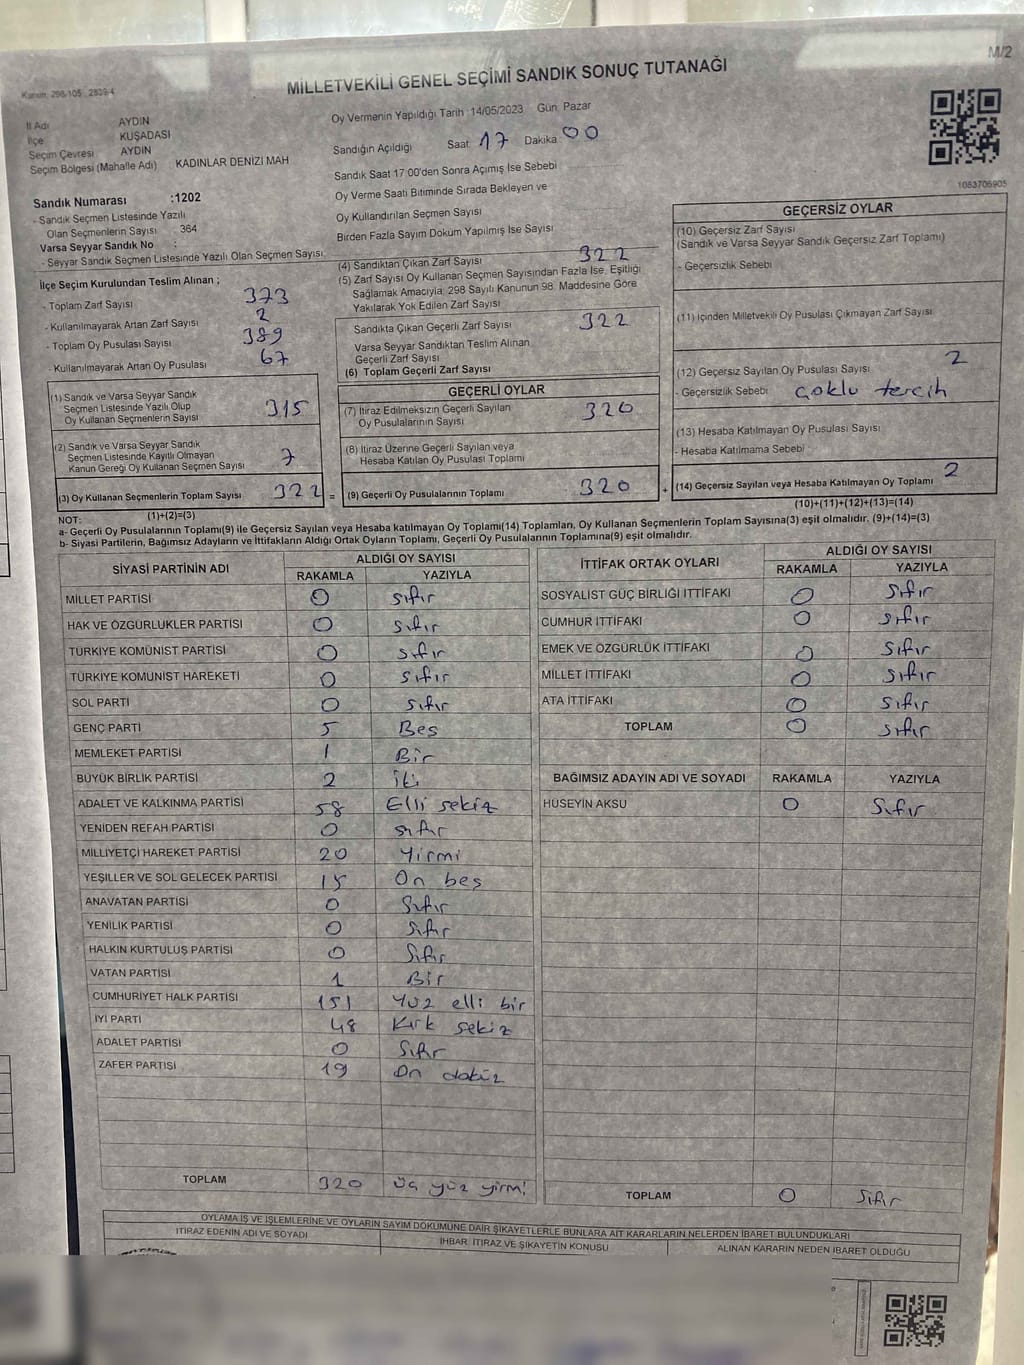 M/2
MİLLETVEKİLİ GENEL SEÇİMİ SANDIK SONUÇ TUTANAĞI
Kanun: 298/105 2839/4
İl Adı AYDIN
İlçe KUŞADASI
Seçim Çevresi AYDIN
Seçim Bölgesi (Mahalle Adı) KADINLAR DENİZİ MAH
Sandık Numarası :1202
- Sandık Seçmen Listesinde Yazılı
Olan Seçmenlerin Sayısı : 364
Varsa Seyyar Sandık No :
- Seyyar Sandık Seçmen Listesinde Yazılı Olan Seçmen Sayısı
Oy Vermenin Yapıldığı Tarih :14/05/2023 Gün: Pazar
Sandığın Açıldığı Saat 17 Dakika 00
Sandık Saat 17:00'den Sonra Açımış İse Sebebi
Oy Verme Saati Bitiminde Sırada Bekleyen ve
Oy Kullandırılan Seçmen Sayısı
Birden Fazla Sayım Döküm Yapılmış İse Sayısı
1083706905
İlçe Seçim Kurulundan Teslim Alınan ;
- Toplam Zarf Sayısı 373
- Kullanılmayarak Artan Zarf Sayısı 2
- Toplam Oy Pusulası Sayısı 389
- Kullanılmayarak Artan Oy Pusulası 67
(1) Sandık ve Varsa Seyyar Sandık
Seçmen Listesinde Yazılı Olup
Oy Kullanan Seçmenlerin Sayısı 315
(2) Sandık ve Varsa Seyyar Sandık
Seçmen Listesinde Kayıtlı Olmayan
Kanun Gereği Oy Kullanan Seçmen Sayısı 7
(3) Oy Kullanan Seçmenlerin Toplam Sayısı 322 =
(1)+(2)=(3)
(4) Sandıktan Çıkan Zarf Sayısı 322
(5) Zarf Sayısı Oy Kullanan Seçmen Sayısından Fazla İse, Eşitliği
Sağlamak Amacıyla; 298 Sayılı Kanunun 98. Maddesine Göre
Yakılarak Yok Edilen Zarf Sayısı
Sandıkta Çıkan Geçerli Zarf Sayısı 322
Varsa Seyyar Sandıktan Teslim Alınan
Geçerli Zarf Sayısı
(6) Toplam Geçerli Zarf Sayısı
GEÇERLİ OYLAR
(7) İtiraz Edilmeksizin Geçerli Sayılan
Oy Pusulalarının Sayısı 320
(8) İtiraz Üzerine Geçerli Sayılan veya
Hesaba Katılan Oy Pusulası Toplamı
(9) Geçerli Oy Pusulalarının Toplamı 320 +
GEÇERSİZ OYLAR
(10) Geçersiz Zarf Sayısı
(Sandık ve Varsa Seyyar Sandık Geçersiz Zarf Toplamı)
- Geçersizlik Sebebi
(11) İçinden Milletvekili Oy Pusulası Çıkmayan Zarf Sayısı
(12) Geçersiz Sayılan Oy Pusulası Sayısı 2
- Geçersizlik Sebebi çoklu tercih
(13) Hesaba Katılmayan Oy Pusulası Sayısı
- Hesaba Katılmama Sebebi
(14) Geçersiz Sayılan veya Hesaba Katılmayan Oy Toplamı 2
(10)+(11)+(12)+(13)=(14)
NOT:
a- Geçerli Oy Pusulalarının Toplamı(9) ile Geçersiz Sayılan veya Hesaba katılmayan Oy Toplamı(14) Toplamları, Oy Kullanan Seçmenlerin Toplam Sayısına(3) eşit olmalıdır. (9)+(14)=(3)
b- Siyasi Partilerin, Bağımsız Adayların ve İttifakların Aldığı Ortak Oyların Toplamı, Geçerli Oy Pusulalarının Toplamına(9) eşit olmalıdır.
SİYASİ PARTİNİN ADI ALDIĞI OY SAYISI
RAKAMLA YAZIYLA
MİLLET PARTİSİ 0 sıfır
HAK VE ÖZGÜRLÜKLER PARTİSİ 0 sıfır
TÜRKİYE KOMÜNİST PARTİSİ 0 sıfır
TÜRKİYE KOMÜNİST HAREKETİ 0 sıfır
SOL PARTİ 0 sıfır
GENÇ PARTİ 5 Beş
MEMLEKET PARTİSİ 1 Bir
BÜYÜK BİRLİK PARTİSİ 2 iki
ADALET VE KALKINMA PARTİSİ 58 Elli sekiz
YENİDEN REFAH PARTİSİ 0 sıfır
MİLLİYETÇİ HAREKET PARTİSİ 20 Yirmi
YEŞİLLER VE SOL GELECEK PARTİSİ 15 On beş
ANAVATAN PARTİSİ 0 Sıfır
YENİLİK PARTİSİ 0 Sıfır
HALKIN KURTULUŞ PARTİSİ 0 Sıfır
VATAN PARTİSİ 1 Bir
CUMHURİYET HALK PARTİSİ 151 Yüz elli bir
İYİ PARTİ 48 Kırk sekiz
ADALET PARTİSİ 0 Sıfır
ZAFER PARTİSİ 19 On dokuz
TOPLAM 320 üç yüz yirmi
İTTİFAK ORTAK OYLARI ALDIĞI OY SAYISI
RAKAMLA YAZIYLA
SOSYALİST GÜÇ BİRLİĞİ İTTİFAKI 0 sıfır
CUMHUR İTTİFAKI 0 sıfır
EMEK VE ÖZGÜRLÜK İTTİFAKI 0 sıfır
MİLLET İTTİFAKI 0 sıfır
ATA İTTİFAKI 0 sıfır
TOPLAM 0 sıfır
BAĞIMSIZ ADAYIN ADI VE SOYADI RAKAMLA YAZIYLA
HÜSEYİN AKSU 0 Sıfır
TOPLAM 0 Sıfır
OYLAMA İŞ VE İŞLEMLERİNE VE OYLARIN SAYIM DÖKÜMÜNE DAİR ŞİKAYETLERLE BUNLARA AİT KARARLARIN NELERDEN İBARET BULUNDUKLARI
İTİRAZ EDENİN ADI VE SOYADI İHBAR, İTİRAZ VE ŞİKAYETİN KONUSU ALINAN KARARIN NEDEN İBARET OLDUĞU